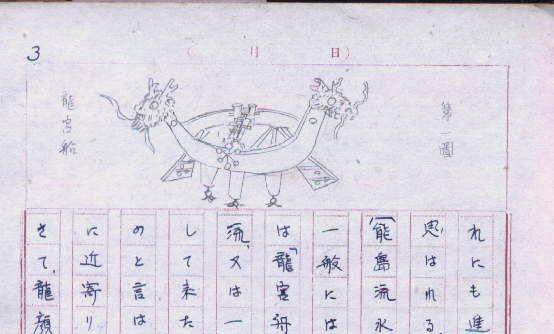 3
( 月 日)
第一圖
龍宮船
れにも進
思はれる。
(能島流水
一般には
は「龍宮舟
流、又は一
して来た
のと言は
に近寄り
さて、龍顔